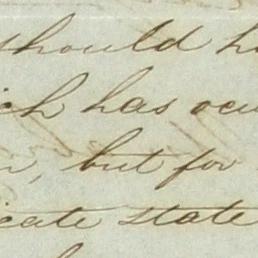 should h
ich has ocu
, but for
icate state